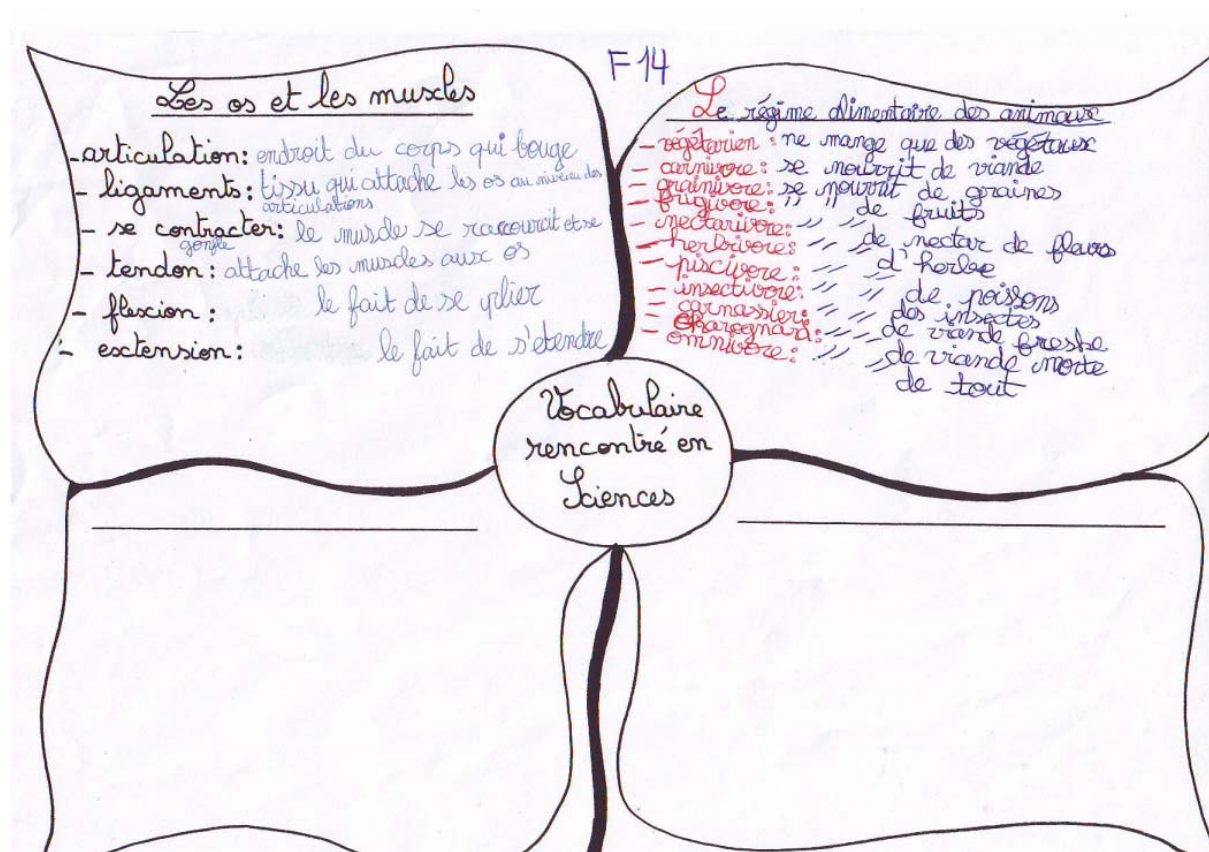 F 14
Les os et les muscles
- articulation: endroit du corps qui bouge
- ligaments: tissu qui attache les os au niveau des
articulations
- se contracter: le muscle se raccourcit et se
gonfle
- tendon: attache les muscles aux os
- flexion: le fait de se plier
- extension: le fait de s'etendre
Le régime alimentaire des animaux
- végétarien: ne mange que des végétaux
- carnivore: se nourrit de viande
- grainivore: se nourrit de graines
- frugivore: " " de fruits
- nectarivore: " " de nectar de fleurs
- herbivore: " " d'herbe
- piscivore: " " de poissons
- insectivore: " " des insectes
- carnassier: " " de viande freshe
- Charognard: de viande morte
- omnivore: " " de tout
Vocabulaire
rencontré en
Sciences